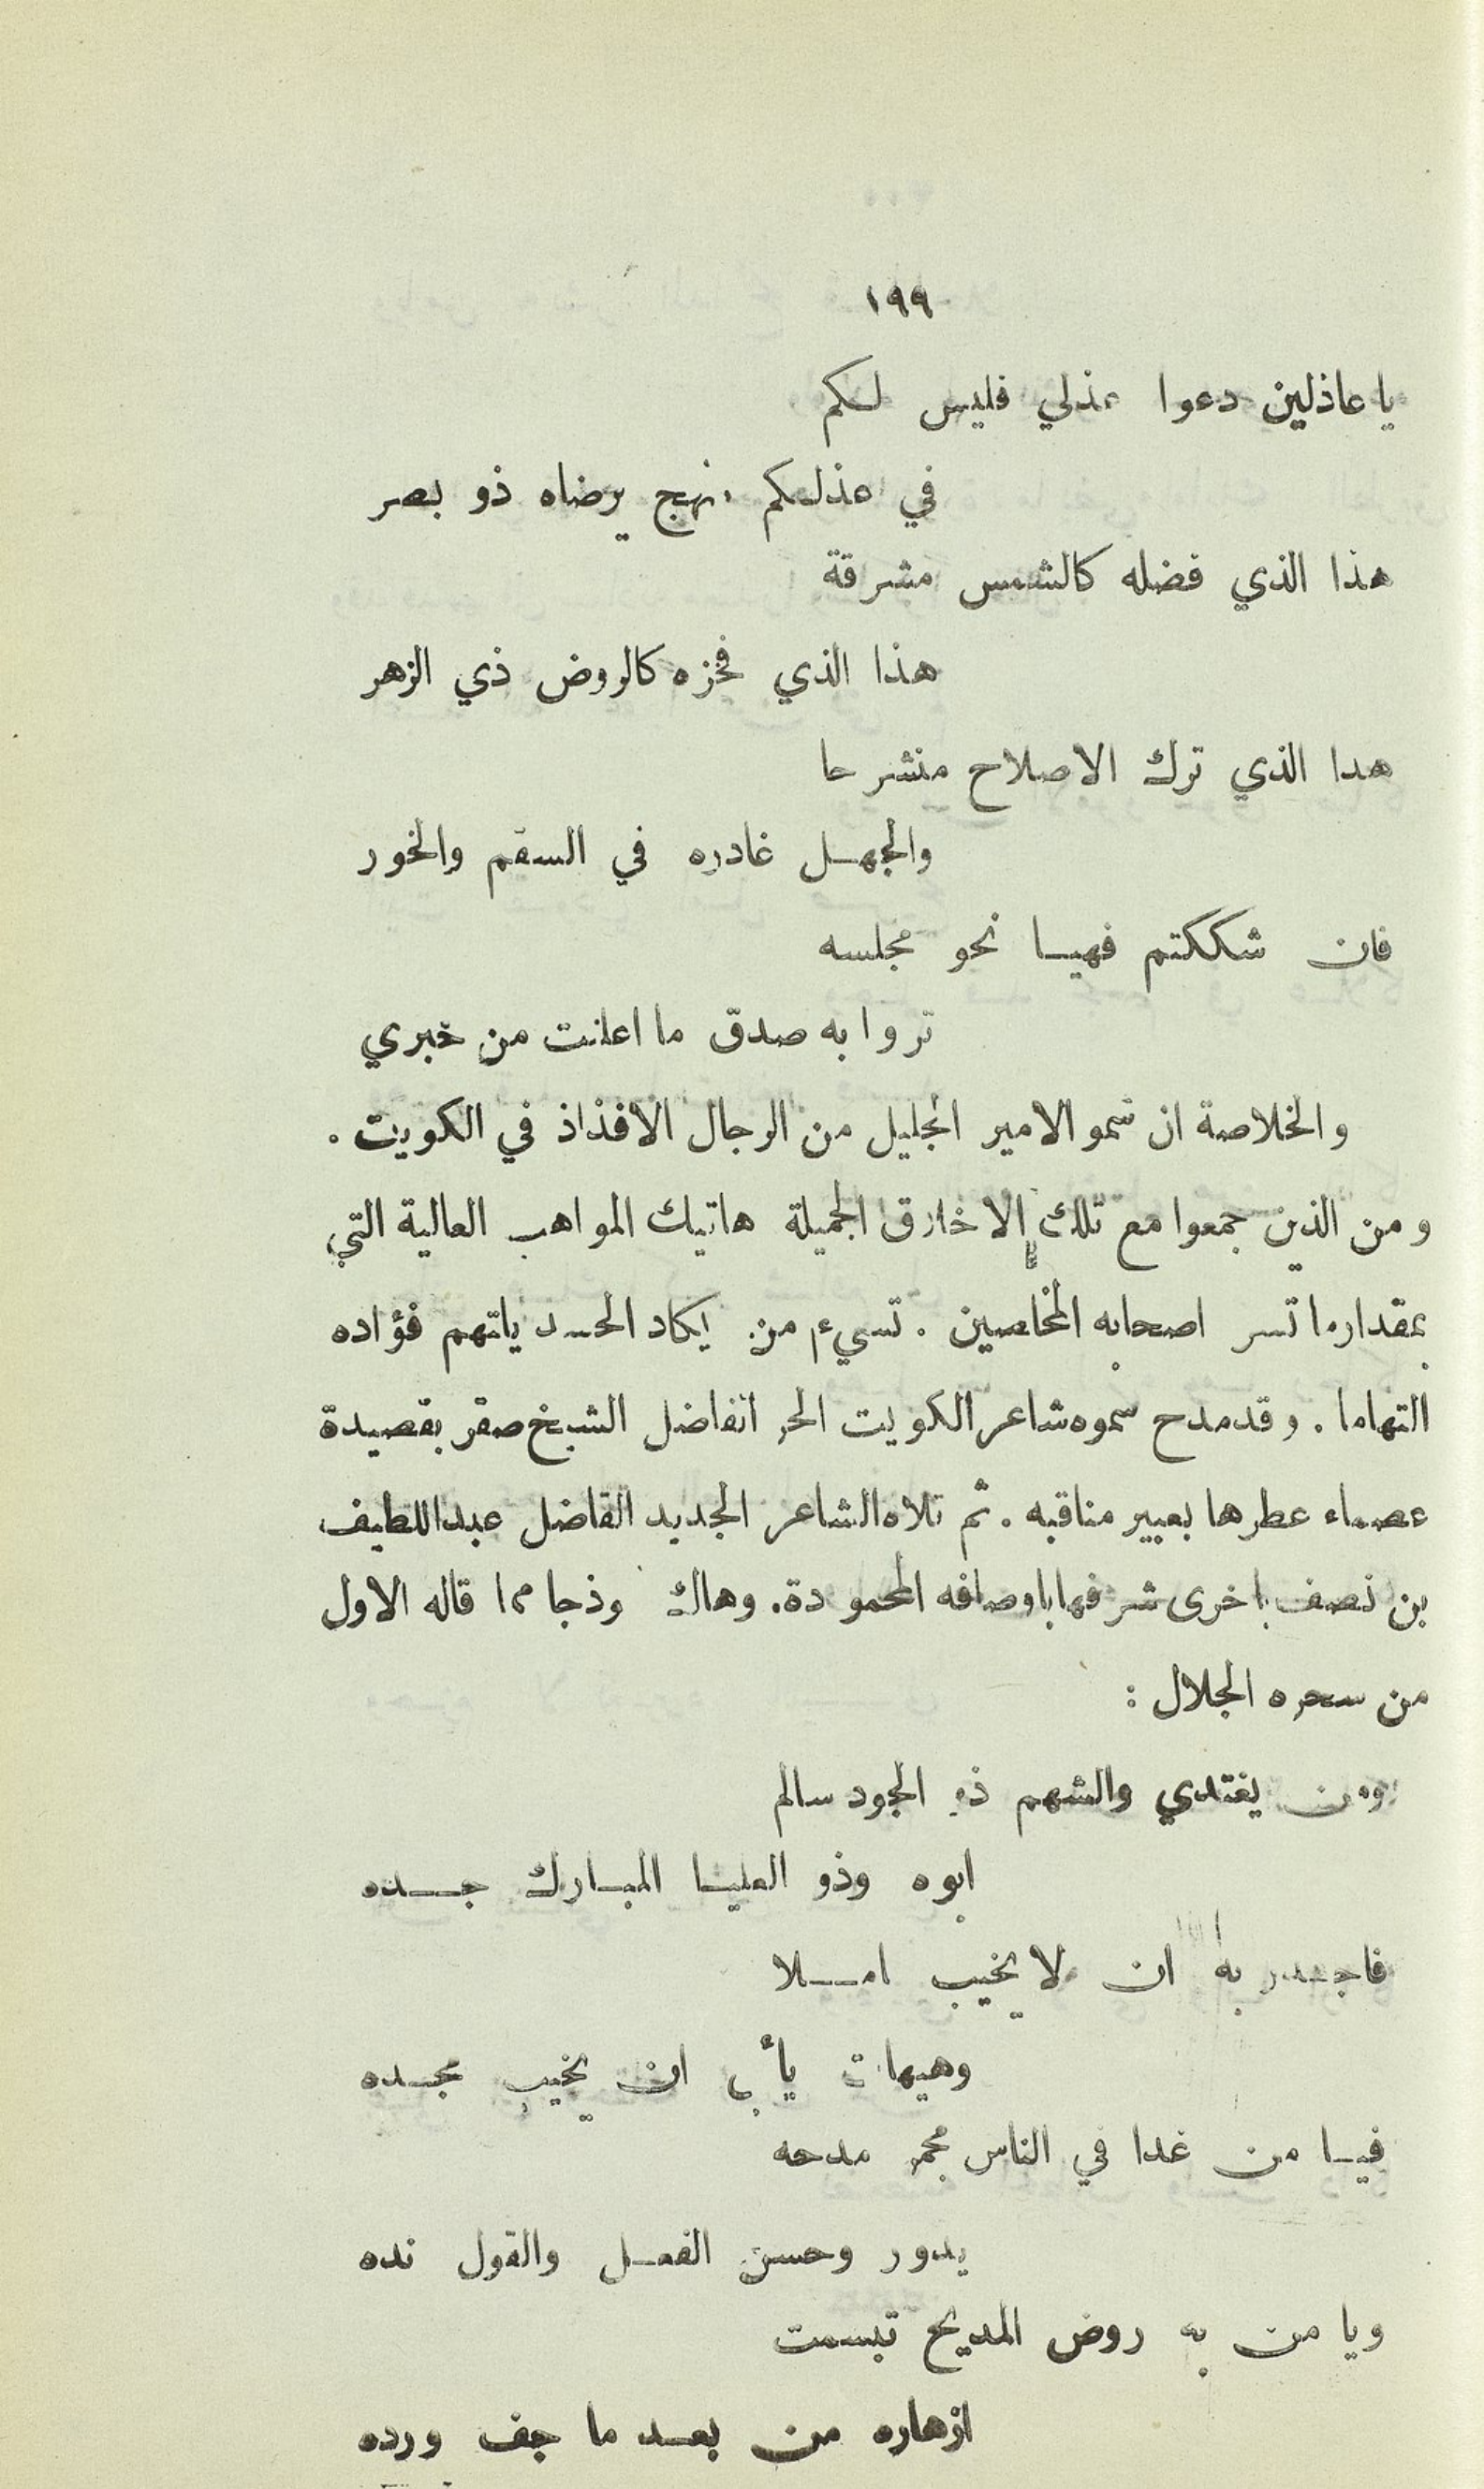 ١٩٩
يا عاذلين دعوا عذلي فليس لكم
في عذلكم نهج يرضاه ذو بصر
هذا الذي فضله كالشمس مشرقة
هذا الذي فخره كالروض ذي الزهر
هدا الذي ترك الاصلاح منشرحا
والجهل غادره في السقم والخور
فان شككتم فهيا نحو مجلسه
تروا به صدق ما اعلنت من خبري
والخلاصة ان سمو الامير الجليل من الرجال الافذاذ في الكويت .
ومن الذين جمعوا مع تلك الاخلاق الجميلة هاتيك المواهب العالية التي
بمقدار ما تسر اصحابه المخلصين . تسيء من يكاد الحسد ياتهم فؤاده
التهاما . وقد مدح سموه شاعر الكويت الحر الفاضل الشيخ صقر بقصيدة
عصماء عطرها بعبير مناقبه . ثم تلاه الشاعر الجديد الفاضل عبد اللطيف
بن نصف باخرى شرفها باوصافه المحمودة . وهاك نموذجا مما قاله الاول
من سحره الجلال :
ومن يغتدي والشهم ذو الجود سالم
ابوه وذو العليا المبارك جده
فاجدر به ان لا يخيب املا
وهيهات يأبى ان يخيب مجده
فيا من غدا في الناس مجمر مدحه
يدور وحسن الفعل والقول نده
ويا من به روض المديح تبسمت
ازهاره من بعد ما جف ورده